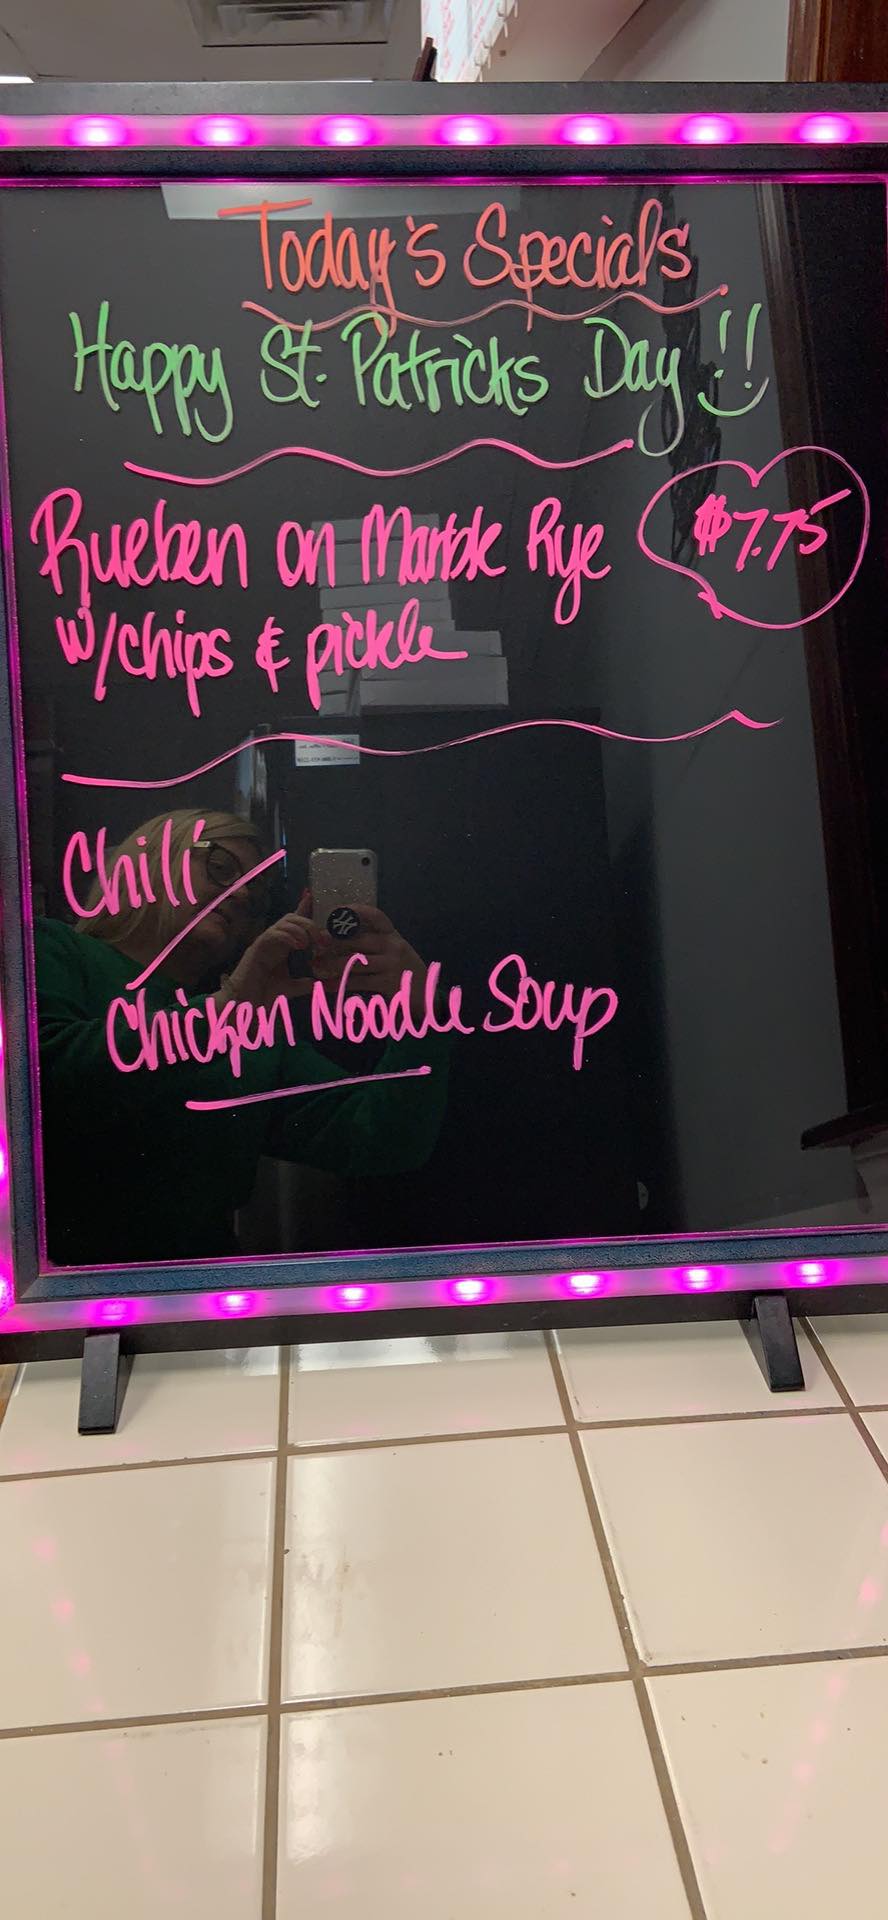 Today's Specials
Happy St. Patricks Day!!
Rueben on Marble Rye
$7.75
w/chips & pickle
Chili
/
Chicken Noodle Soup